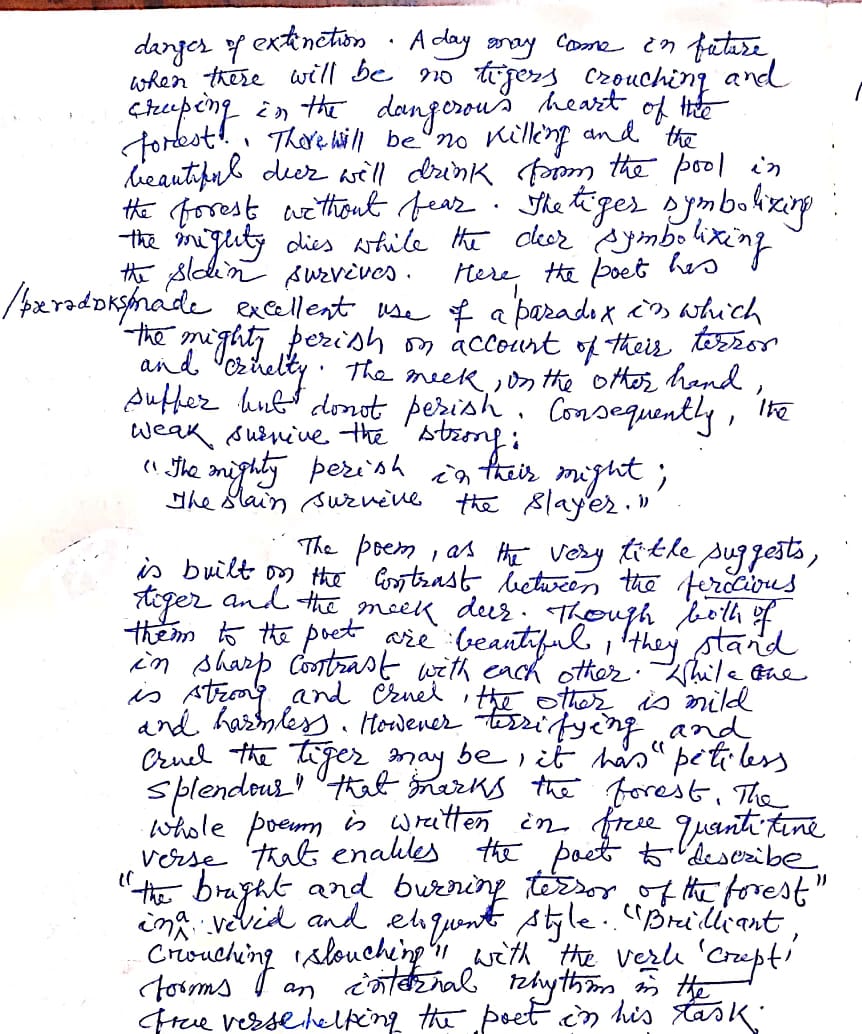 danger of extinction. A day may come in future
when there will be no tigers crouching and
creeping in the dangerous heart of the
forest. There will be no killing and the
beautiful deer will drink from the pool in
the forest without fear. The tiger symbolizing
the mighty dies while the deer symbolizing
the slain survives. Here, the poet has
/pærədɒks/made excellent use of a 'paradox in which
the mighty perish on account of their terror
and cruelty. The meek, on the other hand,
suffer but donot perish. Consequently, the
weak survive the strong:
"The mighty perish in their might;
The slain survive the slayer."
The poem, as the very title suggests,
is built on the contrast between the ferocious
tiger and the meek deer. Though both of
them to the poet are beautiful, they stand
in sharp contrast with each other. While one
is strong and cruel, the other is mild
and harmless. However terrifying and
cruel the tiger may be, it has "pitiless
splendour" that marks the forest. The
whole poem is written in free quantitive
verse that enables the poet to describe
"the bright and burning terror of the forest"
in a vivid and eloquent style. "Brilliant,
crouching, slouching" with the verb 'crept'
forms an internal rhythm in the
free verse helping the poet in his task.